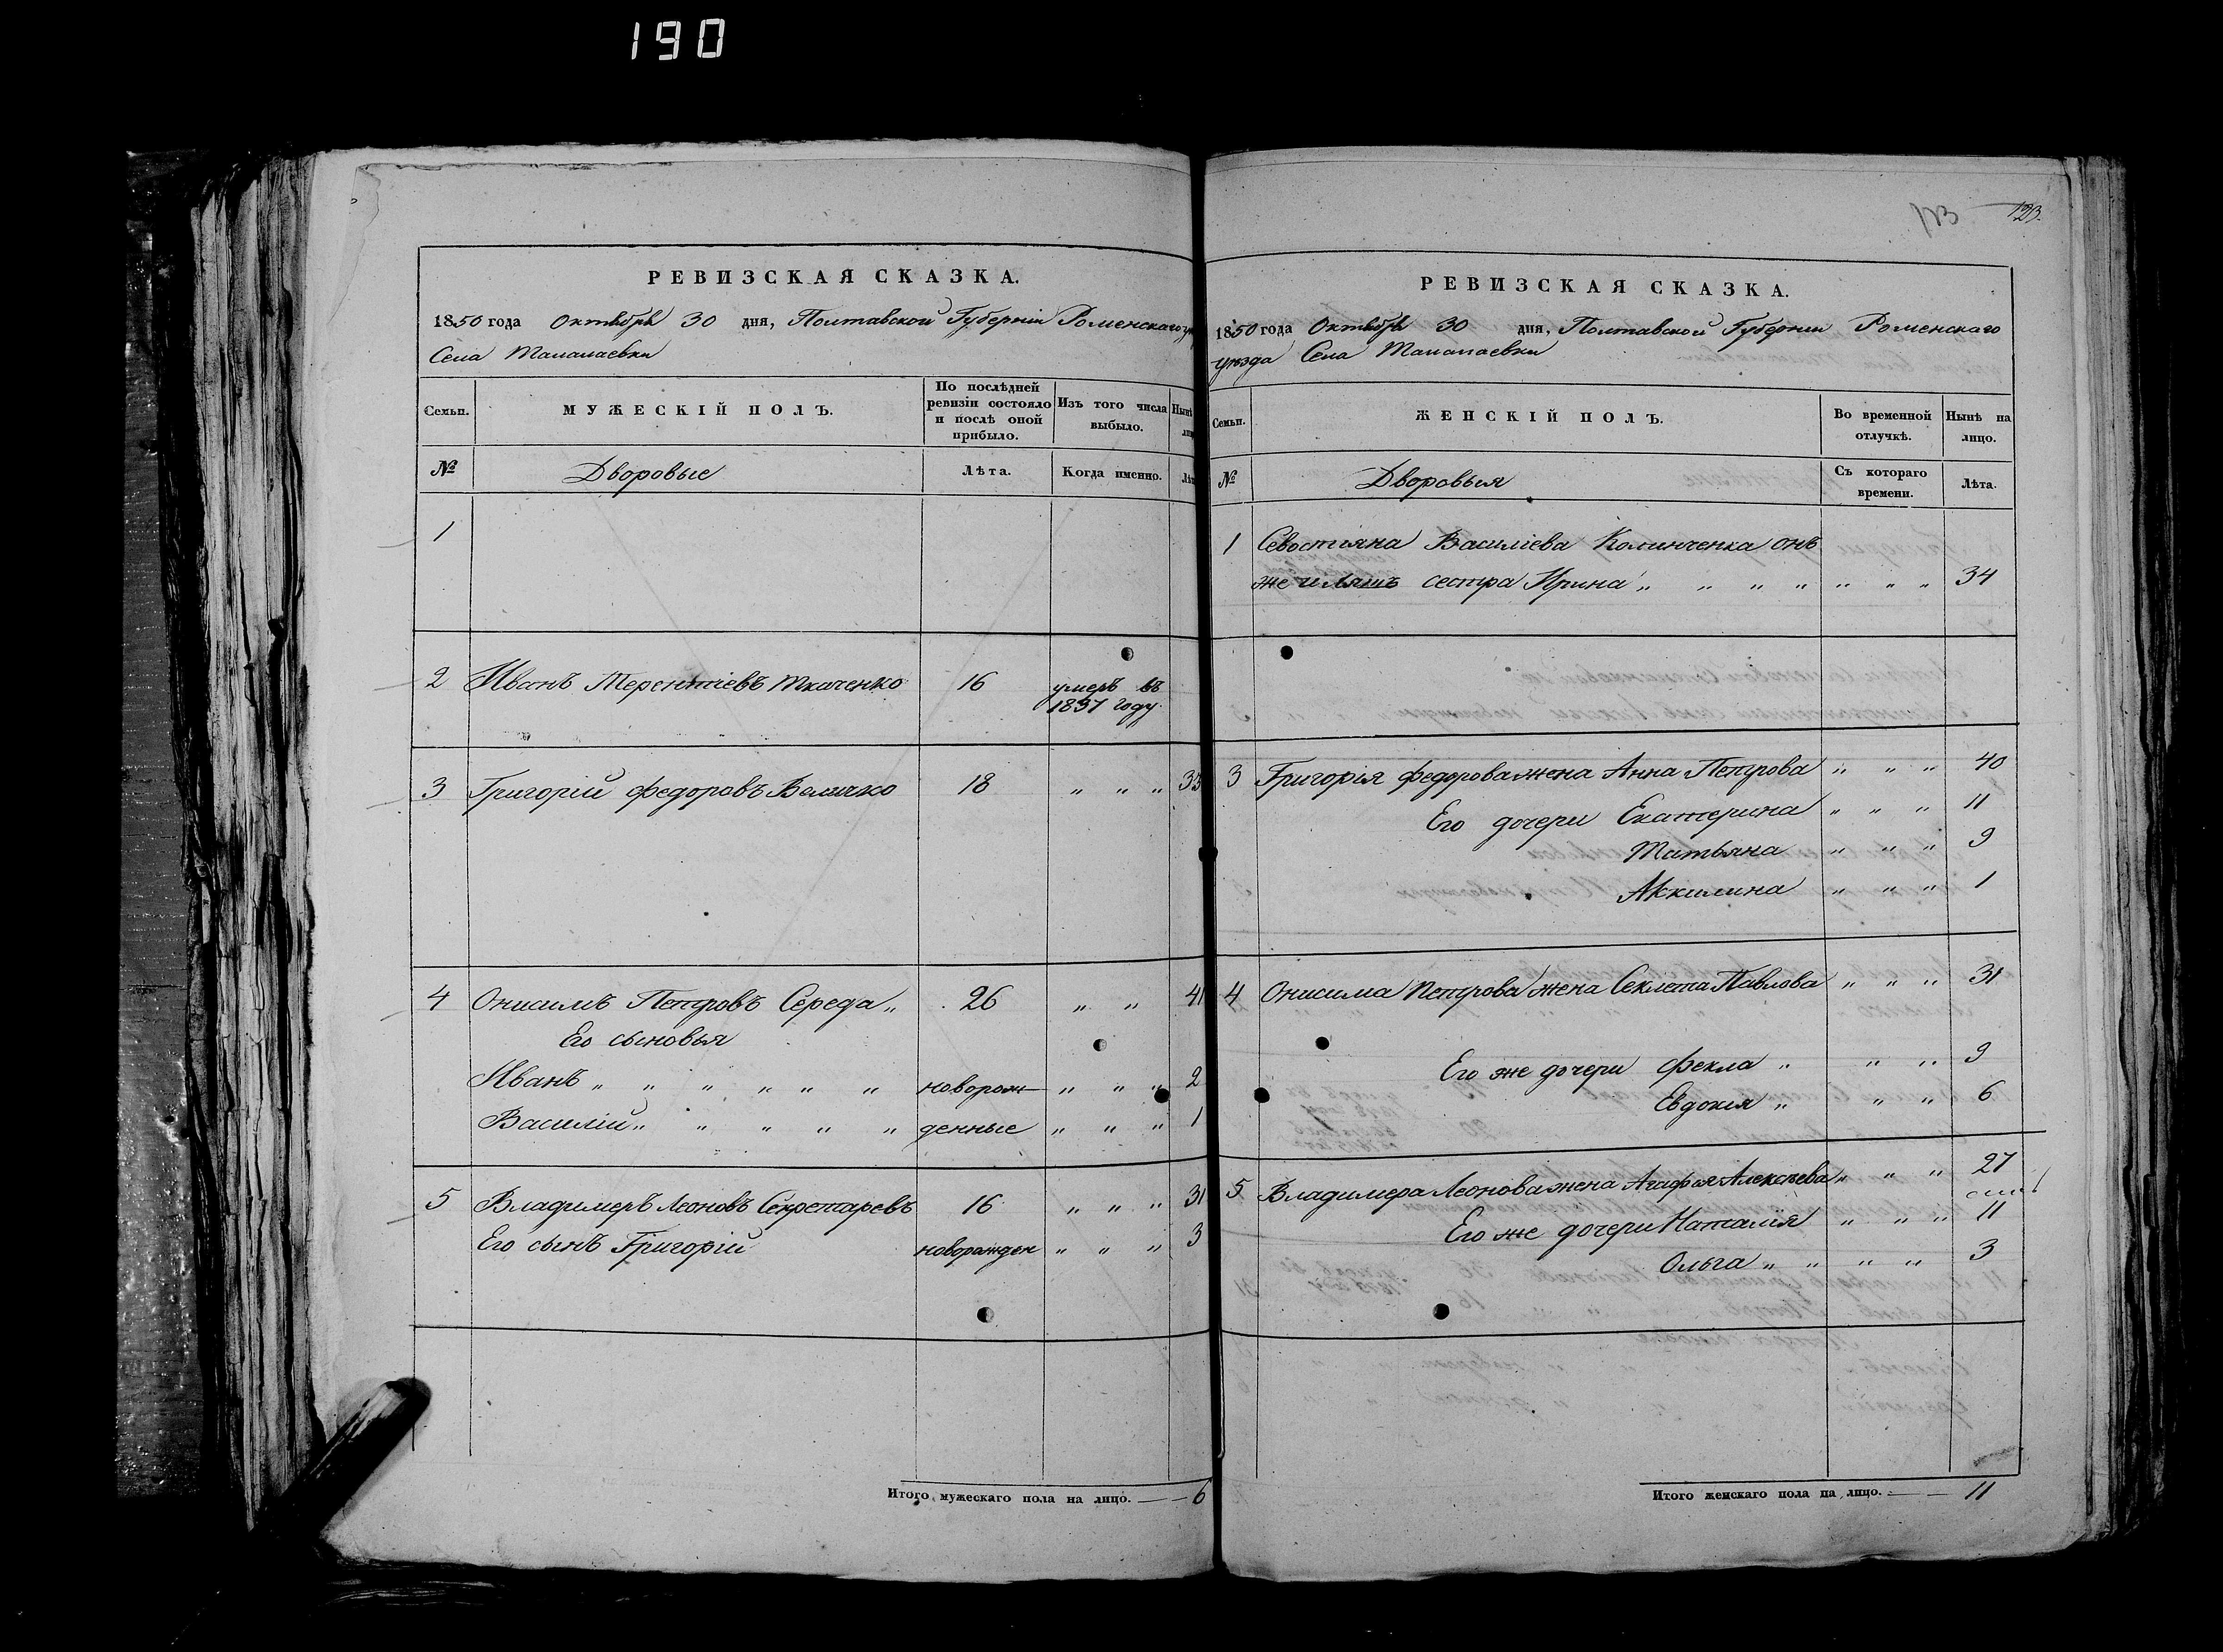 190
РЕВИЗСКАЯ СКАЗКА.
1850 года Октября 30 дня, Полтавской Губерніи Роменскаго
Села Талалаевки
Семьи.
МУЖЕСКІЙ ПОЛЪ.
По послѣдней ревизіи состояло и послѣ оной прибыло.
Изъ того числа выбыло.
№
Дворовые
Лѣта.
Когда именно.
1
2 Иванъ Терентіевъ Ткаченко 16 умеръ въ
1837 году
3 Григорій Федоровъ Величко 18 " " " 33
4 Онисимъ Петровъ Середа " 26 " " 41
Его сыновья
Иванъ " " " " " " новорож- " " " 2
Василій " " " " " денные " " " 1
5 Владимеръ Леоновъ Секретаревъ 16 " " " 31
Его сынъ Григорій новорожден " " " 3
Итого мужескаго пола на лицо. 6
123.
РЕВИЗСКАЯ СКАЗКА.
1850 года Октября 30 дня, Полтавской Губерніи Роменскаго
уѣзда Села Талалаевки
Семьи.
ЖЕНСКІЙ ПОЛЪ.
Во временной отлучкѣ.
Нынѣ на лицо.
№
Дворовыя
Съ котораго времени.
Лѣта.
1 Севостіяна Василіева Калинченка онъ
же и Ляшъ сестра Ирина " " " " " " " 34
3 Григорія Федорова жена Анна Петрова " " " 40
Его дочери Екатерина " " " 11
Татьяна " " " 9
Аккилина " " " 1
4 Онисима Петрова жена Секлета Павлова " " " 31
Его же дочери Фекла " " " 9
Евдокія " " " 6
5 Владимера Леонова жена Агафія Алексѣева " " " 27
Его же дочери Наталія " " " 11
Ольга " " " " 3
Итого женскаго пола на лицо. 11